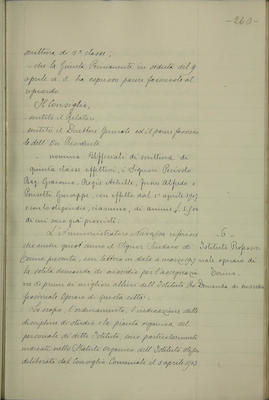 - 260 -
scrittura di 5ª classe;
- che la Giunta Permanente in seduta del 9
aprile a. s. ha espresso parere favorevole al
riguardo
Il Consiglio,
sentito il Relatore
sentito il Direttore Generale ed il parere favore
vole dell' On. Presidente
nomina Ufficiali di scrittura di
quinta classe effettivi, i Signori
Rag. Giacomo, Regis Achille, Alfredo e
Giuseppe, con effetto dal 1° aprile 1907
con lo stipendio, ciascuno, di annue L.
di cui sono già provvisti.
L'Amministratore riferisce
che anche quest'anno il Signor Sindaco di
Torino presenta, con lettera in data 20 marzo 1907
la solita domanda di sussidio per l'assegnazio
ne di premi ai migliori allievi dell'Istituto Pro
fessionale Operaio di questa città.
- 6 -
Istituto Professio
nale operaio di
Torino.
Domanda di sussidio
Lo scopo, l'ordinamento, l'indicazione delle
discipline di studio e la pianta organica del
personale di detto Istituto, sono particolarmente
indicati nello Statuto Organico dell'Istituto stesso
deliberato dal Consiglio Comunale il 3 aprile 1903